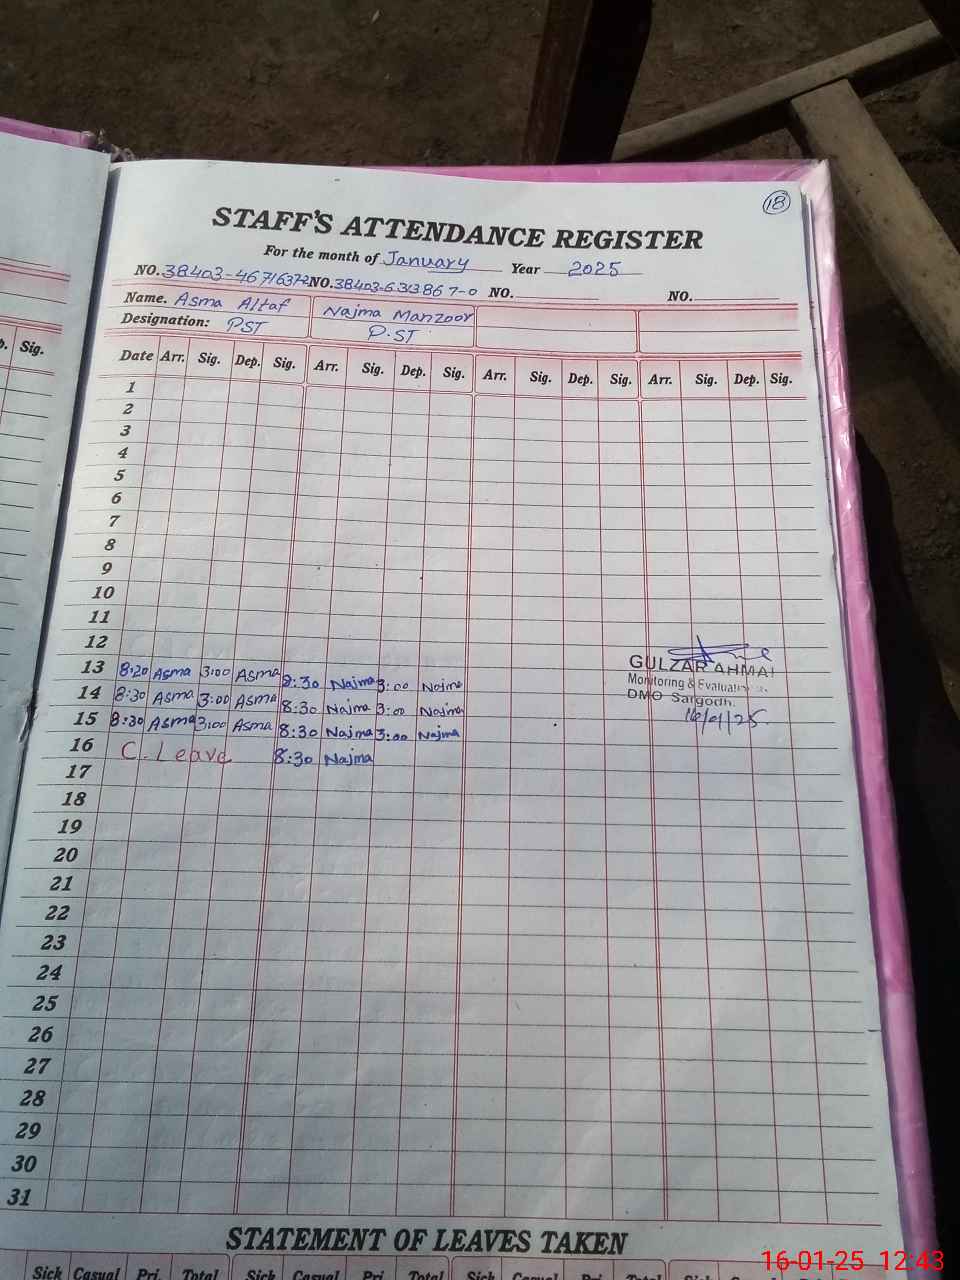 18
STAFF'S ATTENDANCE REGISTER
For the month of January Year 2025
NO. 38403-4671637-2 NO. 38403-6313867-0 NO. NO.
Name. Asma Altaf Najma Manzoor
Designation: PST P.ST
p. Sig.
Date Arr. Sig. Dep. Sig. Arr. Sig. Dep. Sig. Arr. Sig. Dep. Sig. Arr. Sig. Dep. Sig.
1
2
3
4
5
6
7
8
9
10
11
12
13 8:20 Asma 3:00 Asma 8:30 Najma 3:00 Najma
14 8:30 Asma 3:00 Asma 8:30 Najma 3:00 Najma
15 8:30 Asma 3:00 Asma 8:30 Najma 3:00 Najma
16 C. Leave 8:30 Najma
GULZAR AHMA
Monitoring & Evaluati
DMO Sargodh.
16/01/25.
17
18
19
20
21
22
23
24
25
26
27
28
29
30
31
STATEMENT OF LEAVES TAKEN
Sick Casual Pri. Total Sick Casual Pri. Total Sick Casual Pri. Total
16-01-25 12:43